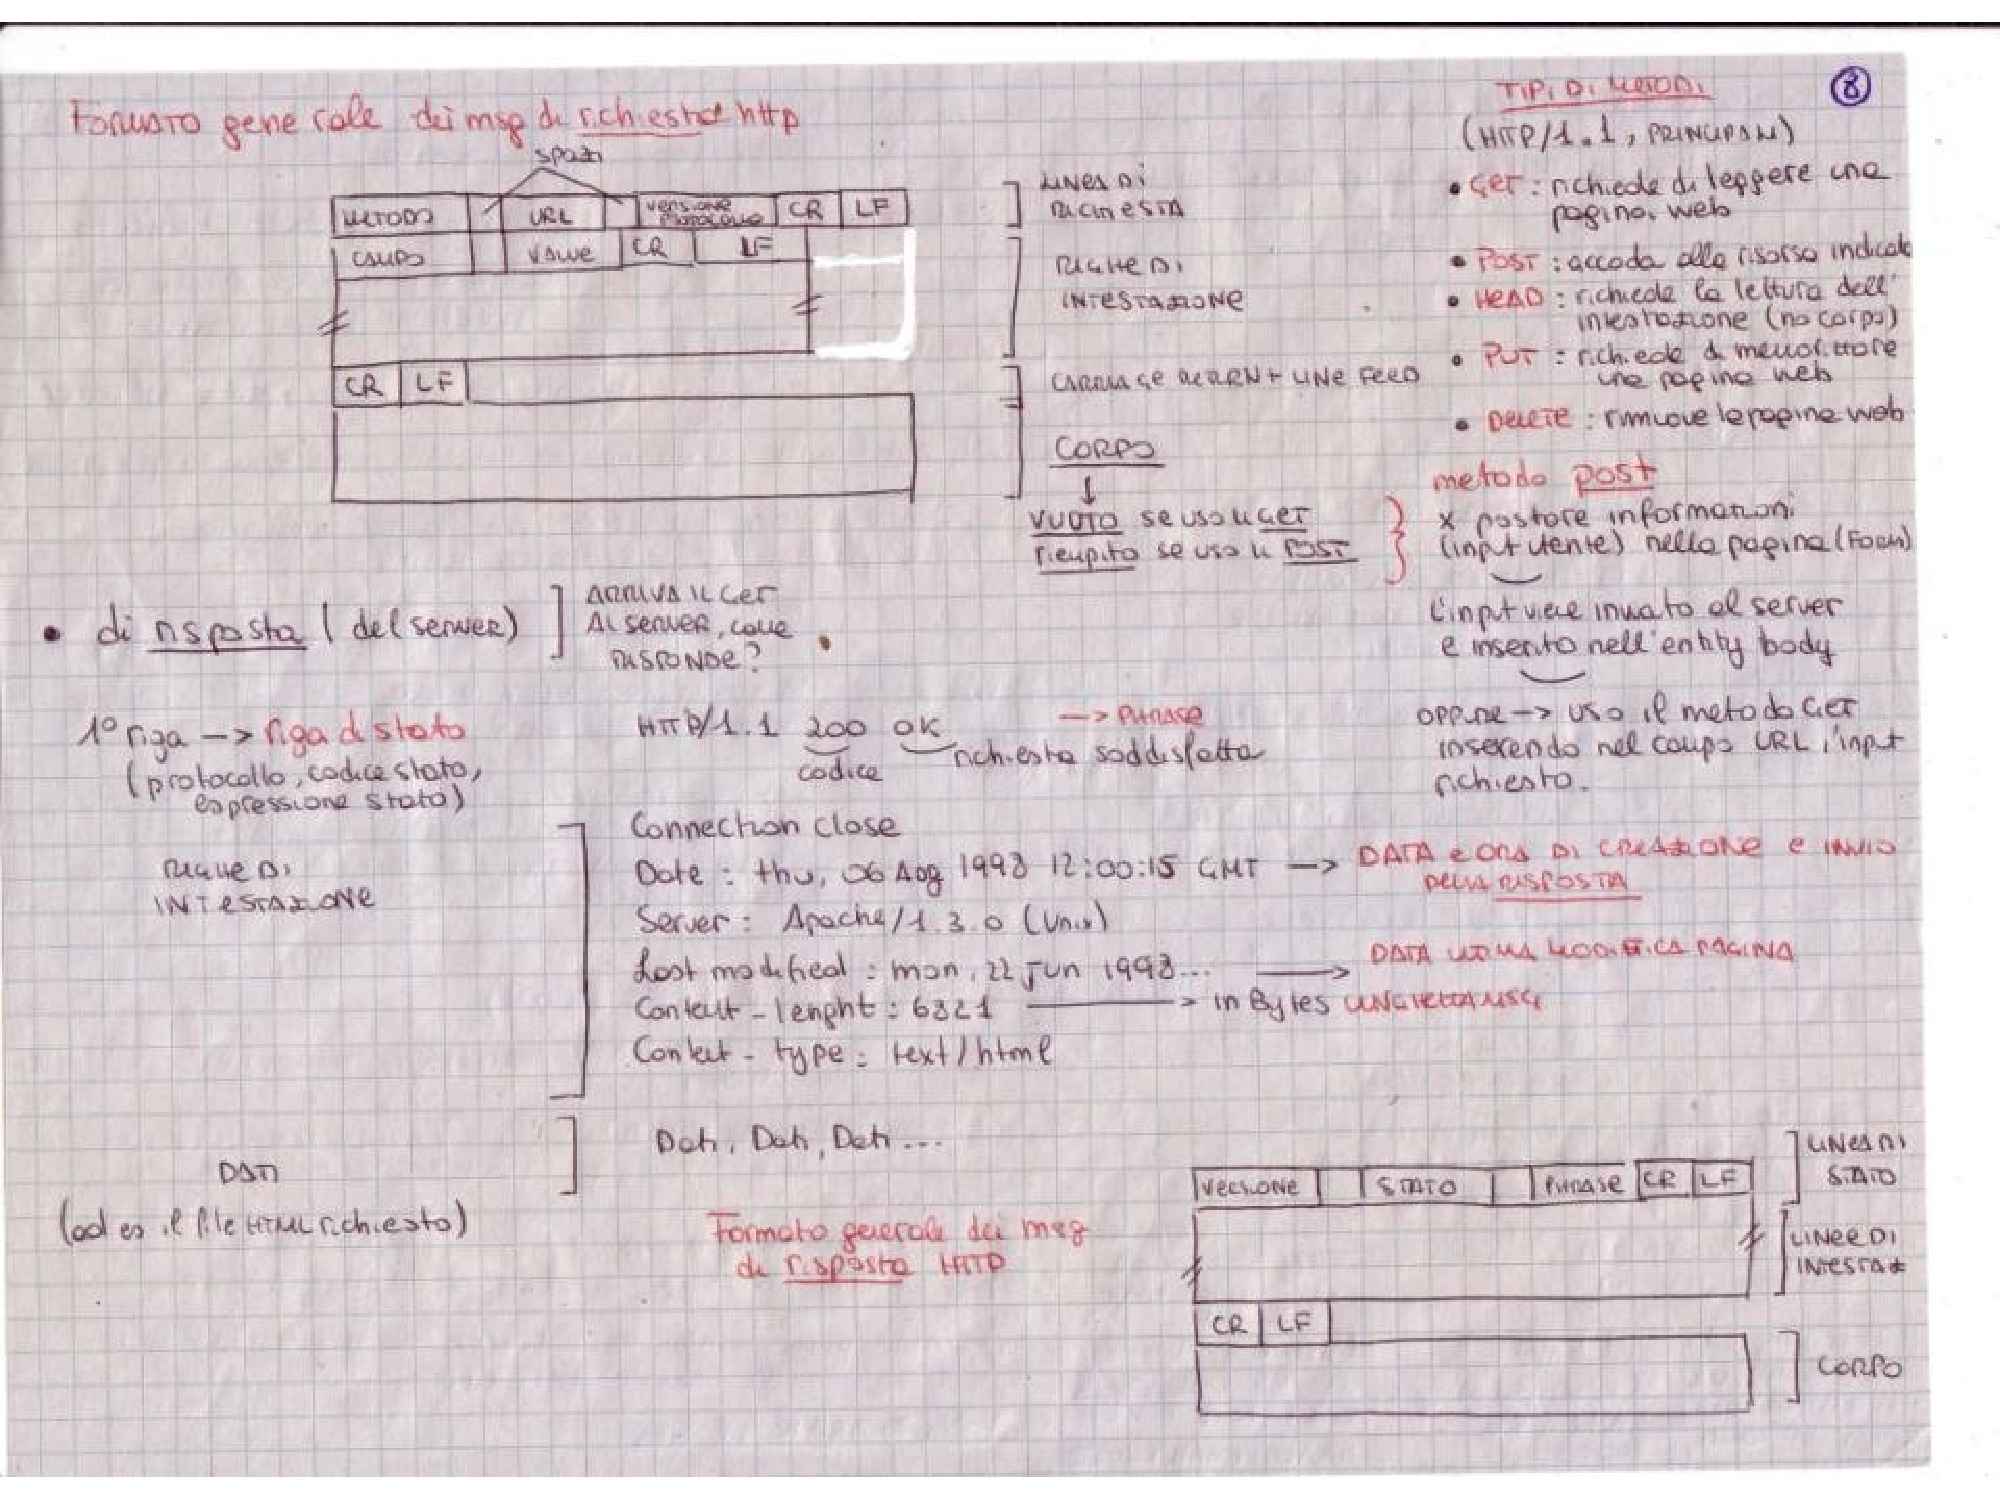 8
Formato generale dei msg di richiesta http
spazi
METODO URL versione protocollo CR LF
CAMPO VALUE CR LF
CR LF
LINEA DI
RICHIESTA
RIGHE DI
INTESTAZIONE
CARRIAGE RETURN + LINE FEED
CORPO
↓
VUOTO se uso il GET
riempito se uso il POST
TIPI DI METODI
(HTTP/1.1, PRINCIPALI)
• GET : richiede di leggere una
pagina web
• POST : accoda alla risorsa indicata
• HEAD : richiede la lettura dell'
intestazione (no corpo)
• PUT : richiede di memorizzare
una pagina web
• DELETE : rimuove le pagine web
metodo post
x postare informazioni
(input utente) nella pagina (Form)
L'input viene inviato al server
e inserito nell'entity body
oppure -> uso il metodo GET
inserendo nel campo URL l'input
richiesto.
• di risposta (del server)
ARRIVA IL GET
AL SERVER, COME
RISPONDE?
1° riga -> riga di stato
(protocollo, codice stato,
espressione stato)
HTTP/1.1 200 OK -> PHRASE
codice richiesta soddisfatta
RIGHE DI
INTESTAZIONE
Connection close
Date : thu, 06 Aog 1998 12:00:15 GMT -> DATA e ORA DI CREAZIONE e INVIO
DELLA RISPOSTA
Server : Apache/1.3.0 (Unix)
Last modified : mon, 22 Jun 1998... -> DATA ULTIMA MODIFICA PAGINA
Content - lenght : 6821 -> in Bytes LUNGHEZZA MSG
Content - type : text/html
DATI
(ad es il file HTML richiesto)
Dati, Dati, Dati ...
Formato generale dei msg
di risposta HTTP
VERSIONE STATO PHRASE CR LF
CR LF
LINEA DI
STATO
LINEE DI
INTESTAZ
CORPO